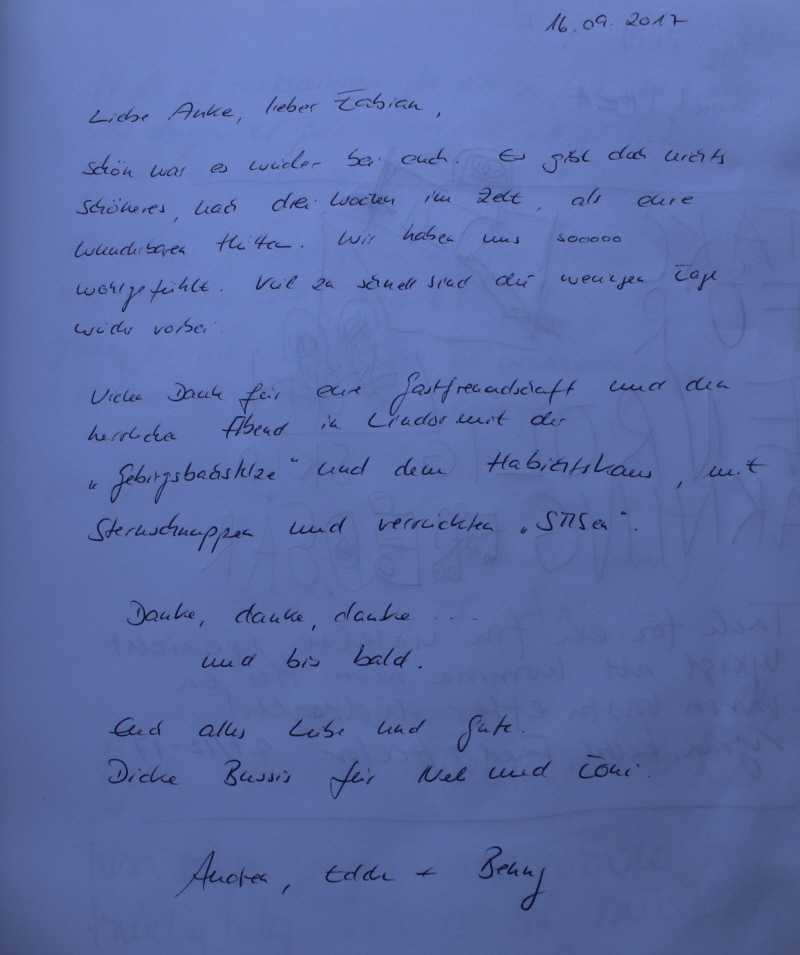 16.09.2017
Liebe Anke, lieber Fabian,
schön war es wieder bei euch. Es gibt doch nichts
schöneres, nach drei Wochen im Zelt, als eure
wunderbaren Hütten. Wir haben uns sooooo
wohlgefühlt. Viel zu schnell sind die wenigen Tage
wieder vorbei.
Vielen Dank für eure Gastfreundschaft und den
herrlichen Abend in mit der
„ " und dem Habichtskauz, mit
Sternschnuppen und verrückten „ ".
Danke, danke, danke ....
und bis bald.
Euch alles Liebe und Gute.
Dicke Bussis für Nel und Toni.
Andrea, + Benny